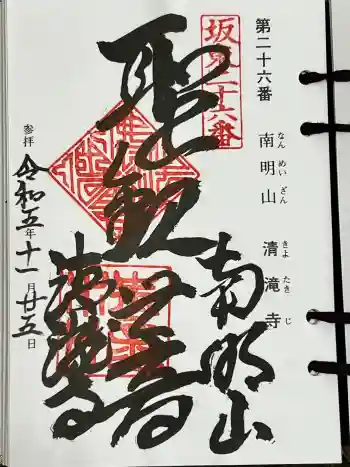 第二十六番 南明山 清滝寺
なんめいざん きよたきじ
坂東二十六番
南明山
聖観世音
清滝寺
参拝 令和五年十一月廿五日